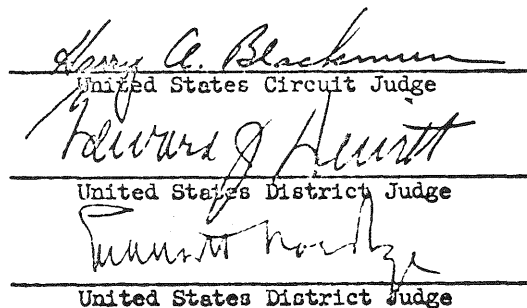 Harry A. Blackmun
United States Circuit Judge
Edward J Devitt
United States District Judge
United States District Judge